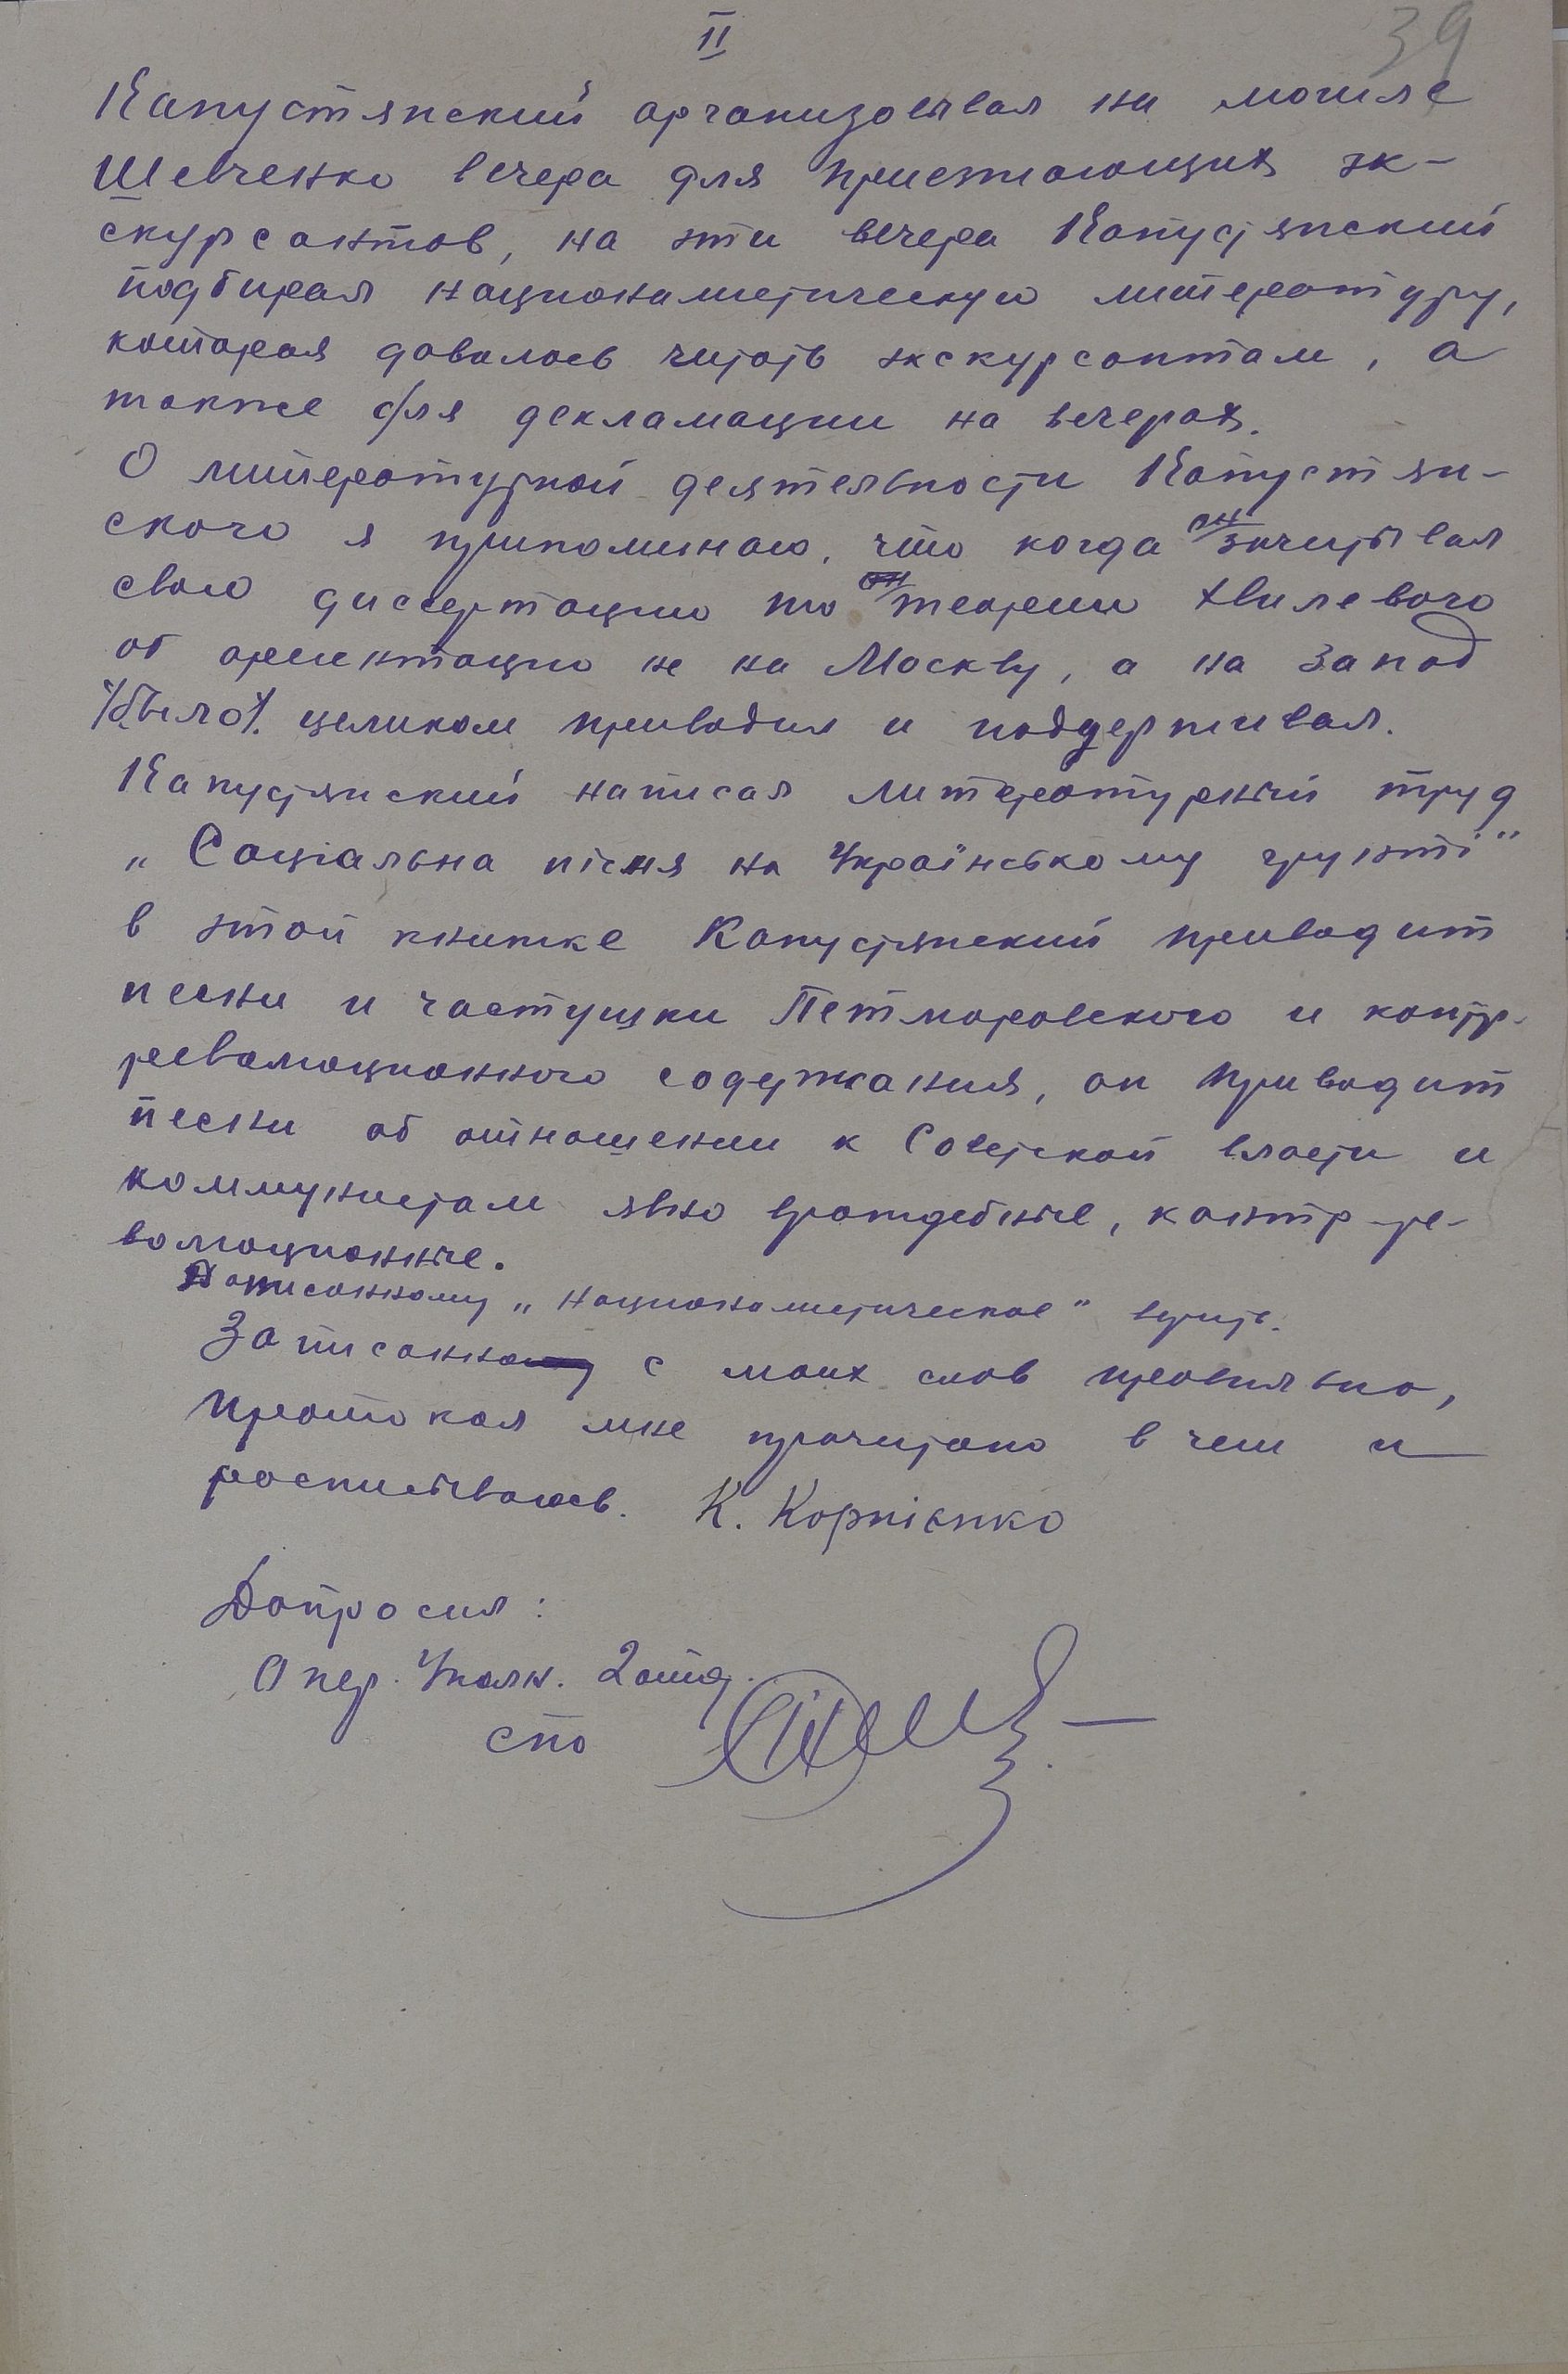 II
39
Капустянский организовывал на могиле
Шевченко вечера для приезжающих эк-
скурсантов, на эти вечера Капустянский
подбирал националистическую литературу,
которая давалось читать экскурсантам, а
также для декламации на вечерах.
О литературной деятельности Капустян-
ского я припоминаю, что когда он зачитывал
свою диссертацию то теорию Хвилевого
об ориентацию не на Москву, а на запад
/было/. целиком приводил и поддерживал.
Капустянский написал литературный труд
„Соціальна пісня на Українському грунті"
в этой книжке Капустянский приводит
песни и частушки Петлюровского и контр-
революционного содержания, он приводит
песни об отношении к Советской власти и
коммунистам явно враждебные, контр-ре-
волюционные.
Написанному „националистическое" верить.
Записанно с моих слов правильно,
протокол мне прочитано в чем и
росписываюсь. К. Корнієнко
Допросил:
Опер. Уполн. 2 отд.
СПО